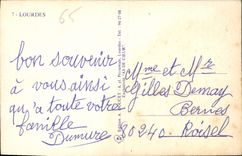 7 - LOURDES
65
bon souvenir
à vous ainsi
qu'a toute votre
famille
Dumure
Mme et Mr
Gilles Demay
Bernes
80240 - Roisel